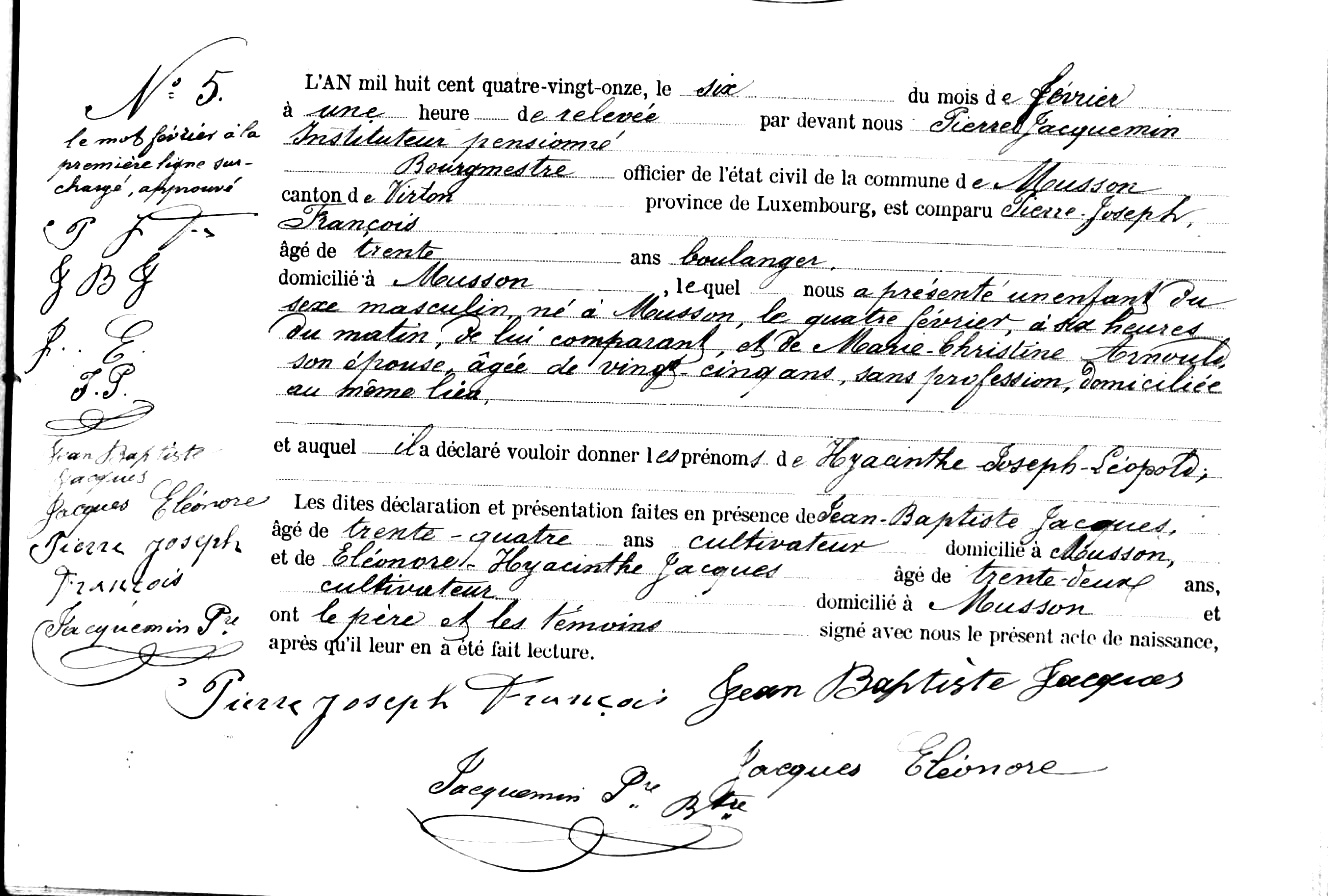 N° 5.
le mot février à la
première ligne sur-
chargé, approuvé
P J F
J B J
J. E.
J. P.
Jean Baptiste
Jacques
Jacques Eléonore
Pierre Joseph
François
Jacquemin Pre
L'AN mil huit cent quatre-vingt-onze, le six du mois de février
à une heure de relevée par devant nous Pierre Jacquemin
Instituteur pensionné
Bourgmestre officier de l'état civil de la commune de Musson
canton de Virton province de Luxembourg, est comparu Pierre-Joseph,
François
âgé de trente ans boulanger,
domicilié à Musson, lequel nous a présenté un enfant du
sexe masculin, né à Musson, le quatre février, à six heures
du matin, de lui comparant, et de Marie-Christine Arnould,
son épouse, âgée de vingt-cinq ans, sans profession, domiciliée
au même lieu,
et auquel il a déclaré vouloir donner les prénoms de Hyacinthe-Joseph-Léopold;
Les dites déclaration et présentation faites en présence de Jean-Baptiste Jacques,
âgé de trente-quatre ans cultivateur domicilié à Musson,
et de Eléonore-Hyacinthe Jacques âgé de trente-deux ans,
cultivateur domicilié à Musson et
ont le père et les témoins signé avec nous le présent acte de naissance,
après qu'il leur en a été fait lecture.
Pierre Joseph François Jean Baptiste Jacques
Jacques Eléonore
Jacquemin Pre Btre